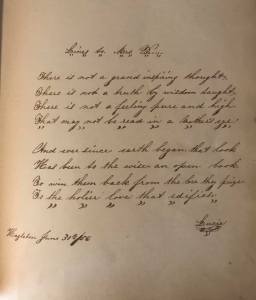 Lines to Mrs
There is not a grand inspiring thought,
There is not a truth by wisdom sought,
There is not a feeling pure and high
That may not be read in a Mother's eye.
And ever since earth began that look
Has been to the wise an open book
To win them back from the lore they prize
To the holier love that edifies.
Lucie
Hazleton June 30th/86